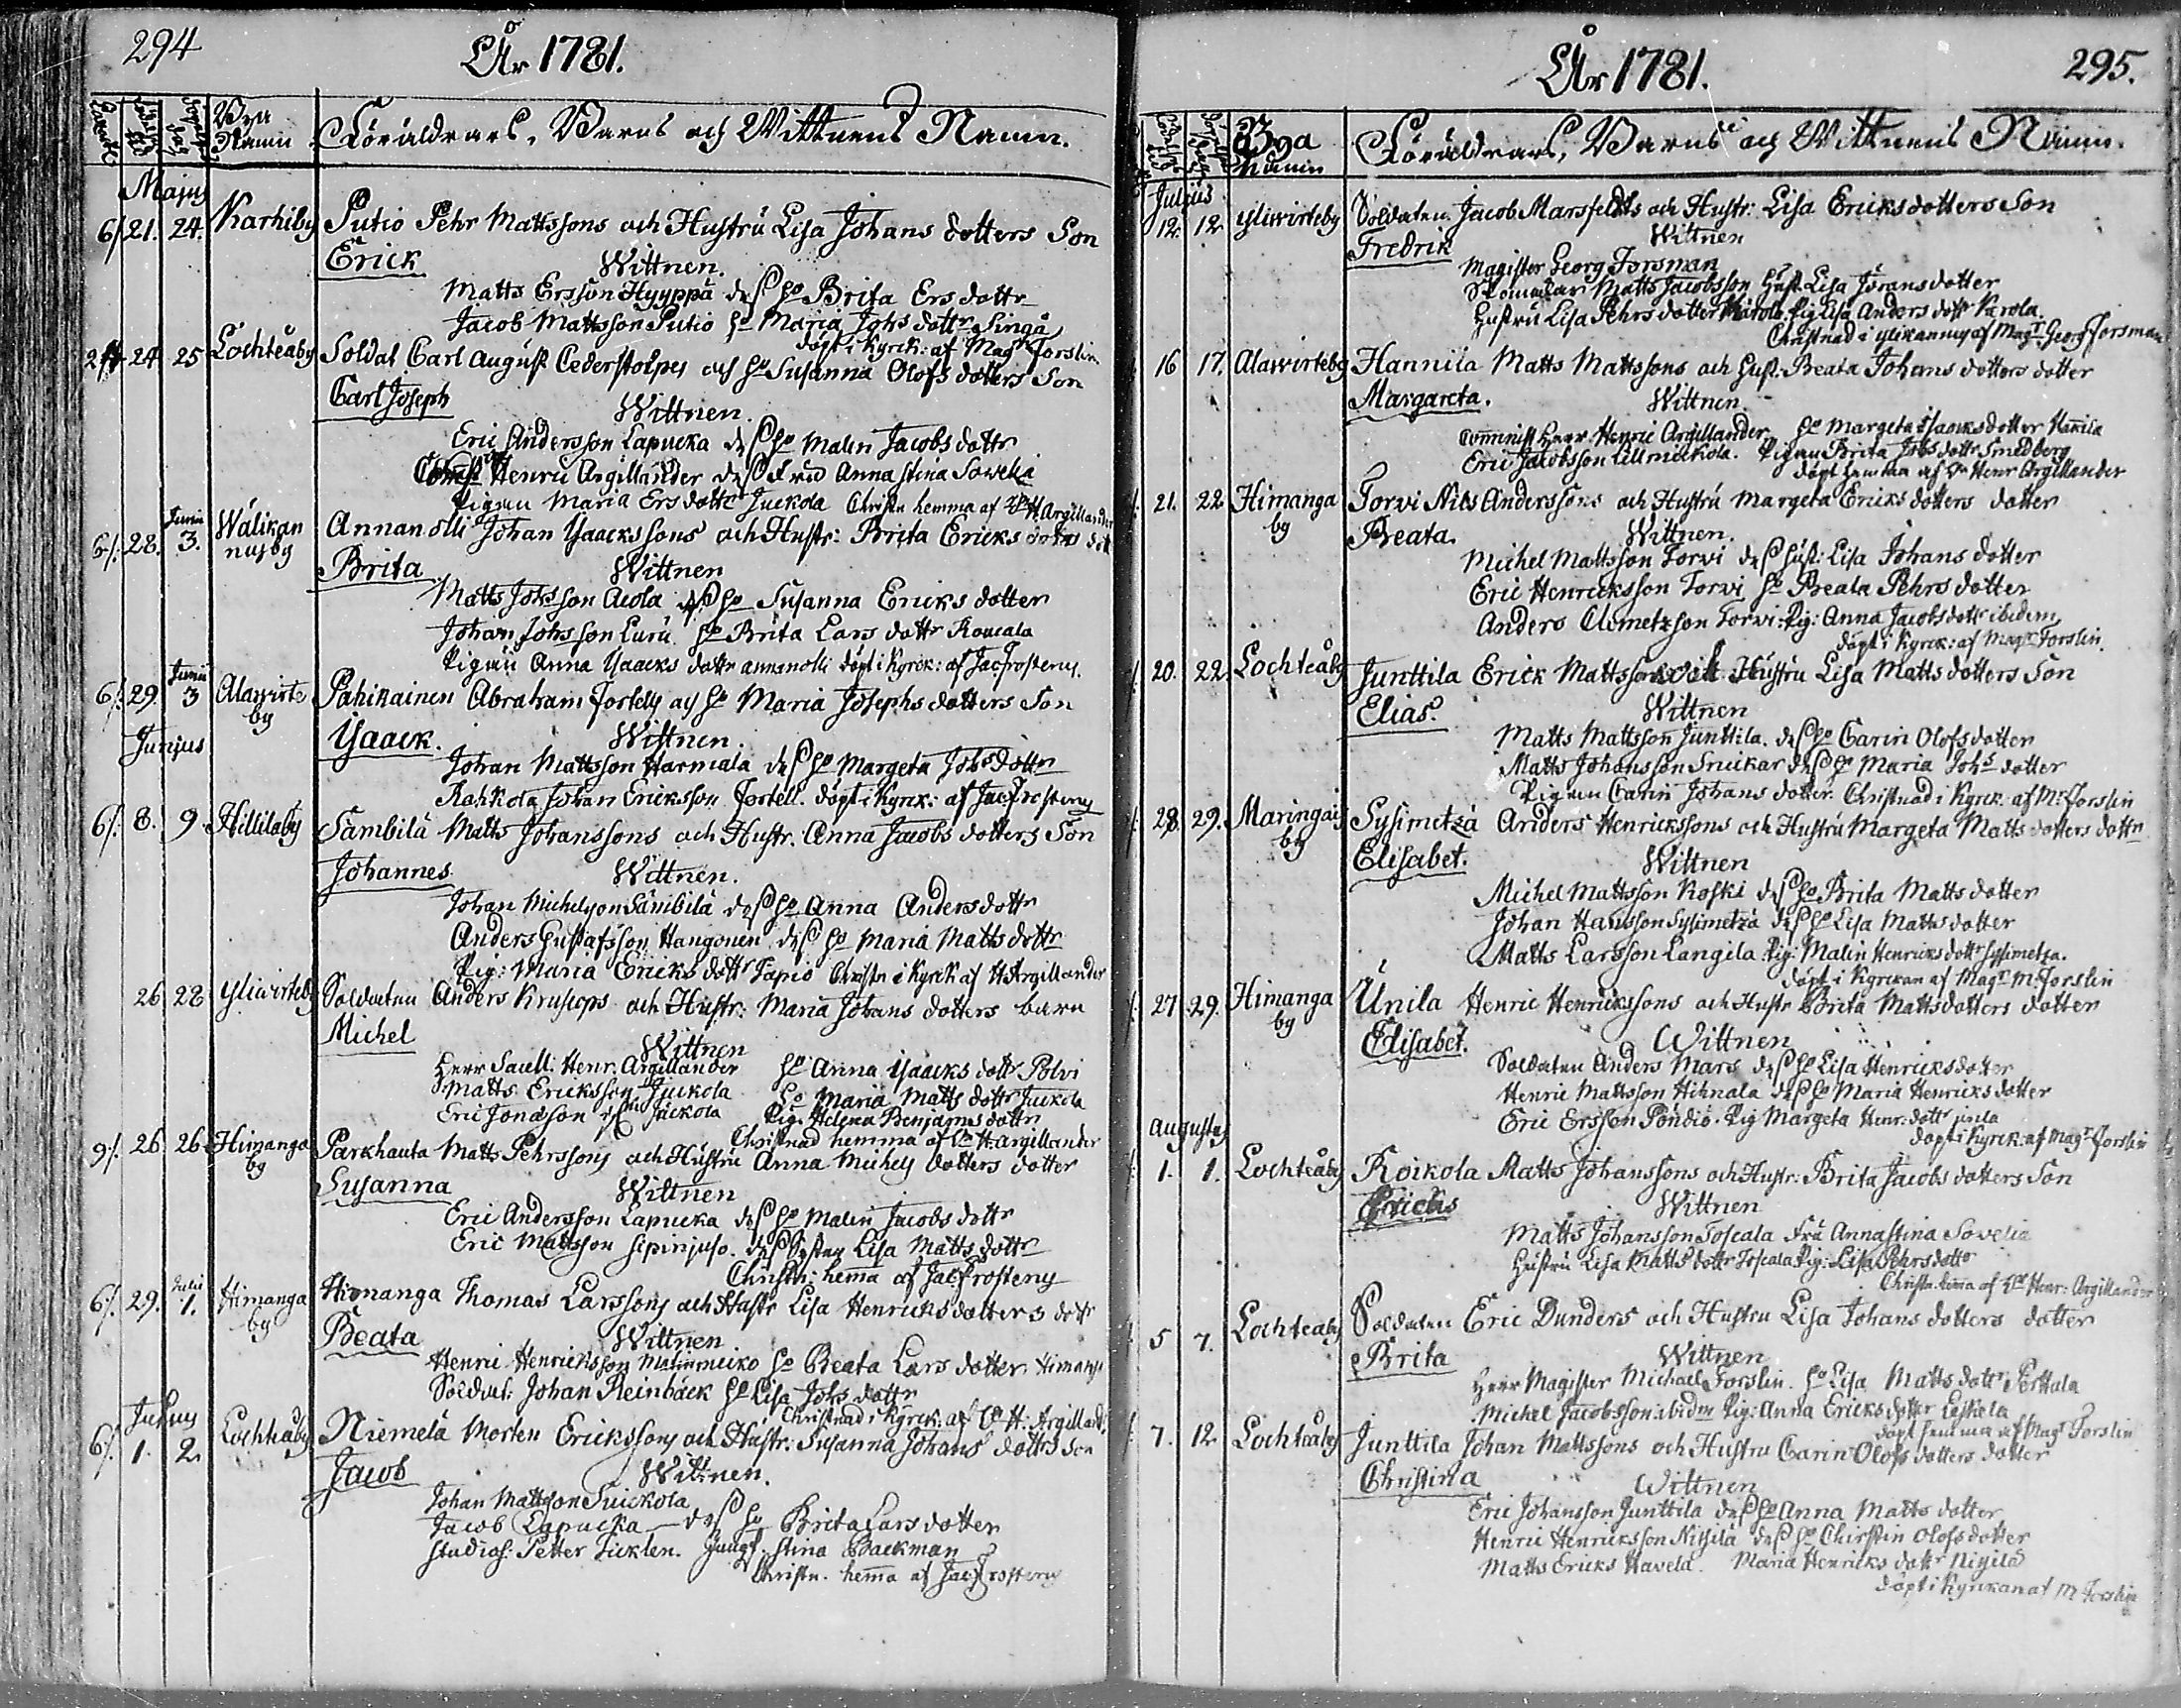 294
År 1781.
Bya Namn
Föräldrars, Barns och Wittnens Namn.
Majus
6/. 21. 24. Karhiby Putio Pehr Mattssons och Hustru Lisa Johans dotters Son
Erick
Wittnen.
Matts Ersson Hyyppä dess Ho Brita Ers dottr
Jacob Mattsson Putio Ho Maria Johs dottr Singå
döpt i Kyrck: af Magr Forslin
24 25 Lochteåby Soldat Carl August Cederstolpes och Ho Susanna Olofs dotters Son
Carl Joseph
Wittnen.
Eric Andersson Lapucka dess Ho Malin Jacobs dottr
Henric Argillander dess Fru Anna Stina Sowelia
Pigan Maria Ers dotter Juckola Christn hemma af H Argillander
6/. 28. Junii 3. Wälikan nusby Annanolli Johan Ysaackssons och Hustr: Brita Ericks dotters dot
Brita
Wittnen
Matts Johsson Aiola dess Ho Susanna Ericks dotter
Johan Johsson Luru Ho Brita Lars dottr Roucala
Pigan Anna Ysaacks dottr annanolli döpt i Kyrck: af Jac Frosterus.
6/. 29. Junii 3 Alawirte by Pahikainen Abraham Fortells och Ho Maria Josephs dotters Son
Junjus
Ysaack.
Wittnen
Johan Mattsson Harmala dess Ho Margeta Johs dottr
Rahkola Johan Ericksson Fortell. döpt i Kyrck: af Jac Frosterus
6/. 8. 9. Hillilaby Sämbilä Matts Johanssons och Hustr. Anna Jacobs dotters Son
Johannes
Wittnen.
Johan Michelsson Sämbilä dess Ho Anna Anders dottr
Anders Gustafsson Hangonen dess Ho Maria Matts dottr
Pig: Maria Ericks dottr Tapio Christn i Kyrck af H Argillander
26 28 Yliwirteby Soldaten Anders Kruscops och Hustr: Maria Johans dotters barn
Michel
Wittnen
Herr Sacell. Henr. Argillander Ho Anna Ysaacks dottr Polvi
Matts Ericksson Juckola Ho Maria Matts dottr Juckola
Eric Jonasson Juckola Pig: Helena Benjams dottr
Christnad hemma af H. Argillander
9/. 26 26 Himanga by Parkhauta Matts Pehrssons och Hustru Anna Michels dotters dotter
Susanna
Wittnen
Eric Andersson Lapucka dess Ho Malin Jacobs dottr
Eric Mattsson Sipinjuso. dess Syster Lisa Matts dottr
Christn: hemma af Jac Frosterus
6/. 29. Julii 1. Himanga by Himanga Thomas Larssons och Hustr Lisa Henricks dotters dottr
Beata
Wittnen
Henric Henricksson Ho Beata Lars dotter Himanga
Soldat: Johan Reinbäck Ho Lisa Johs dottr
Christnad i Kyrck: af H. Argillander
Julius
6/. 1. 2. Lochteåby Niemelä Morten Erickssons och Hustr: Susanna Johans dotters Son
Jacob
Wittnen.
Johan Mattsson Tuickola
Jacob Lapucka - dess Ho Brita Lars dotter
Studios. Petter Ticklen. Jungf: Stina Backman
Christn. hemma af Jac Frosterus
År 1781.
295.
Bya Namn
Föräldrars, Barns och Wittnens Namn.
Julius
12. 12 Yliwirteby Soldaten Jacob Marsfeldts och Hustr: Lisa Ericksdotters Son
Fredrik
Wittnen
Magister Georg Forsman
Matts Jacobsson Hust. Lisa Jöransdotter
Hustru Lisa Pehrs dotter Karola. Pig Lisa Anders dottr Karola.
Christnad i Ylikannus af Magr. Georg Forsman
16 17. Alawirteby Hannila Matts Mattssons och Hust. Beata Johans dotters dotter
Margareta.
Wittnen
Comminist Herr Henric Argillander Ho Margeta Isaacksdotter Hanila
Eric Jacobsson Pigan Brita Johs dottr Smedberg
döpt hemma af Hr Henr Argillander
21. 22 Himanga by Torvi Nils Anderssons och Hustru Margeta Ericks dotters dotter
Beata.
Wittnen.
Michel Mattsson Torvi dess Hust: Lisa Johans dotter
Eric Henricksson Torvi Ho Beata Pehrs dotter
Anders Clemetsson Torvi. Pig: Anna Jacobs dottr ibidem
döpt i Kyrck: af Magr Forslin.
20. 22 Lochteåby Junttila Erick Mattssons och Hustru Lisa Matts dotters Son
Elias.
Wittnen
Matts Mattsson Junttila. dess Ho Carin Olofsdotter
Matts Johansson Snickar dess Ho Maria Johs dotter
Pigan Carin Johans dotter. Christnad i Kyrck. af Mr Forslin
28. 29. Maringais by Sysimetzä Anders Henrickssons och Hustru Margeta Matts dotters dottr
Elisabet.
Wittnen
Michel Mattsson Koski dess Ho Brita Matts dotter
Johan Hansson Sysimetzä dess Ho Lisa Matts dotter
Matts Larsson Langila. Pig: Malin Henricks dottr Sysimetza.
döpt i Kyrckan af Magr M. Forslin
27 29. Himanga by Unila Henric Henrickssons och Hustr Brita Mattsdotters dotter
Elisabet.
Wittnen
Soldaten Anders Mars dess Ho Lisa Henricksdotter
Henric Mattsson Hihnala dess Ho Maria Henricks dotter
Eric Ersson Pöndiö. Pig Margeta Henr. dottr
döpt i Kyrck: af Magr Forslin
Augustus
1. 1. Lochteåby Roikola Matts Johanssons och Hustr: Brita Jacobs dotters Son
Wittnen
Matts Johansson Toscala Fru Anna Stina Sovelia
Hustru Lisa Matts dottr Toscala Pig: Lisa Pehrs dottr
Christn. hemma af Henr: Argillander
5 7. Lochteåby Soldaten Eric Dunders och Hustru Lisa Johans dotters dotter
Brita
Wittnen
Herr Magister Michael Forslin. Ho Lisa Matts dottr Perttula
Michel Jacobsson ibidm Pig: Anna Ericks dotter Leskela
döpt hemma af Magr Forslin
7. 12 Lochteåby Junttila Johan Mattssons och Hustru Carin Olofs dotters dotter
Christina
Wittnen
Eric Johansson Junttila dess Ho Anna Matts dotter
Henric Henricksson Nisyilä dess Ho Chirstin Olofsdotter
Matts Ericks Havela. Maria Henricks dottr Nisyila
döpt i Kyrckan af M Forslin